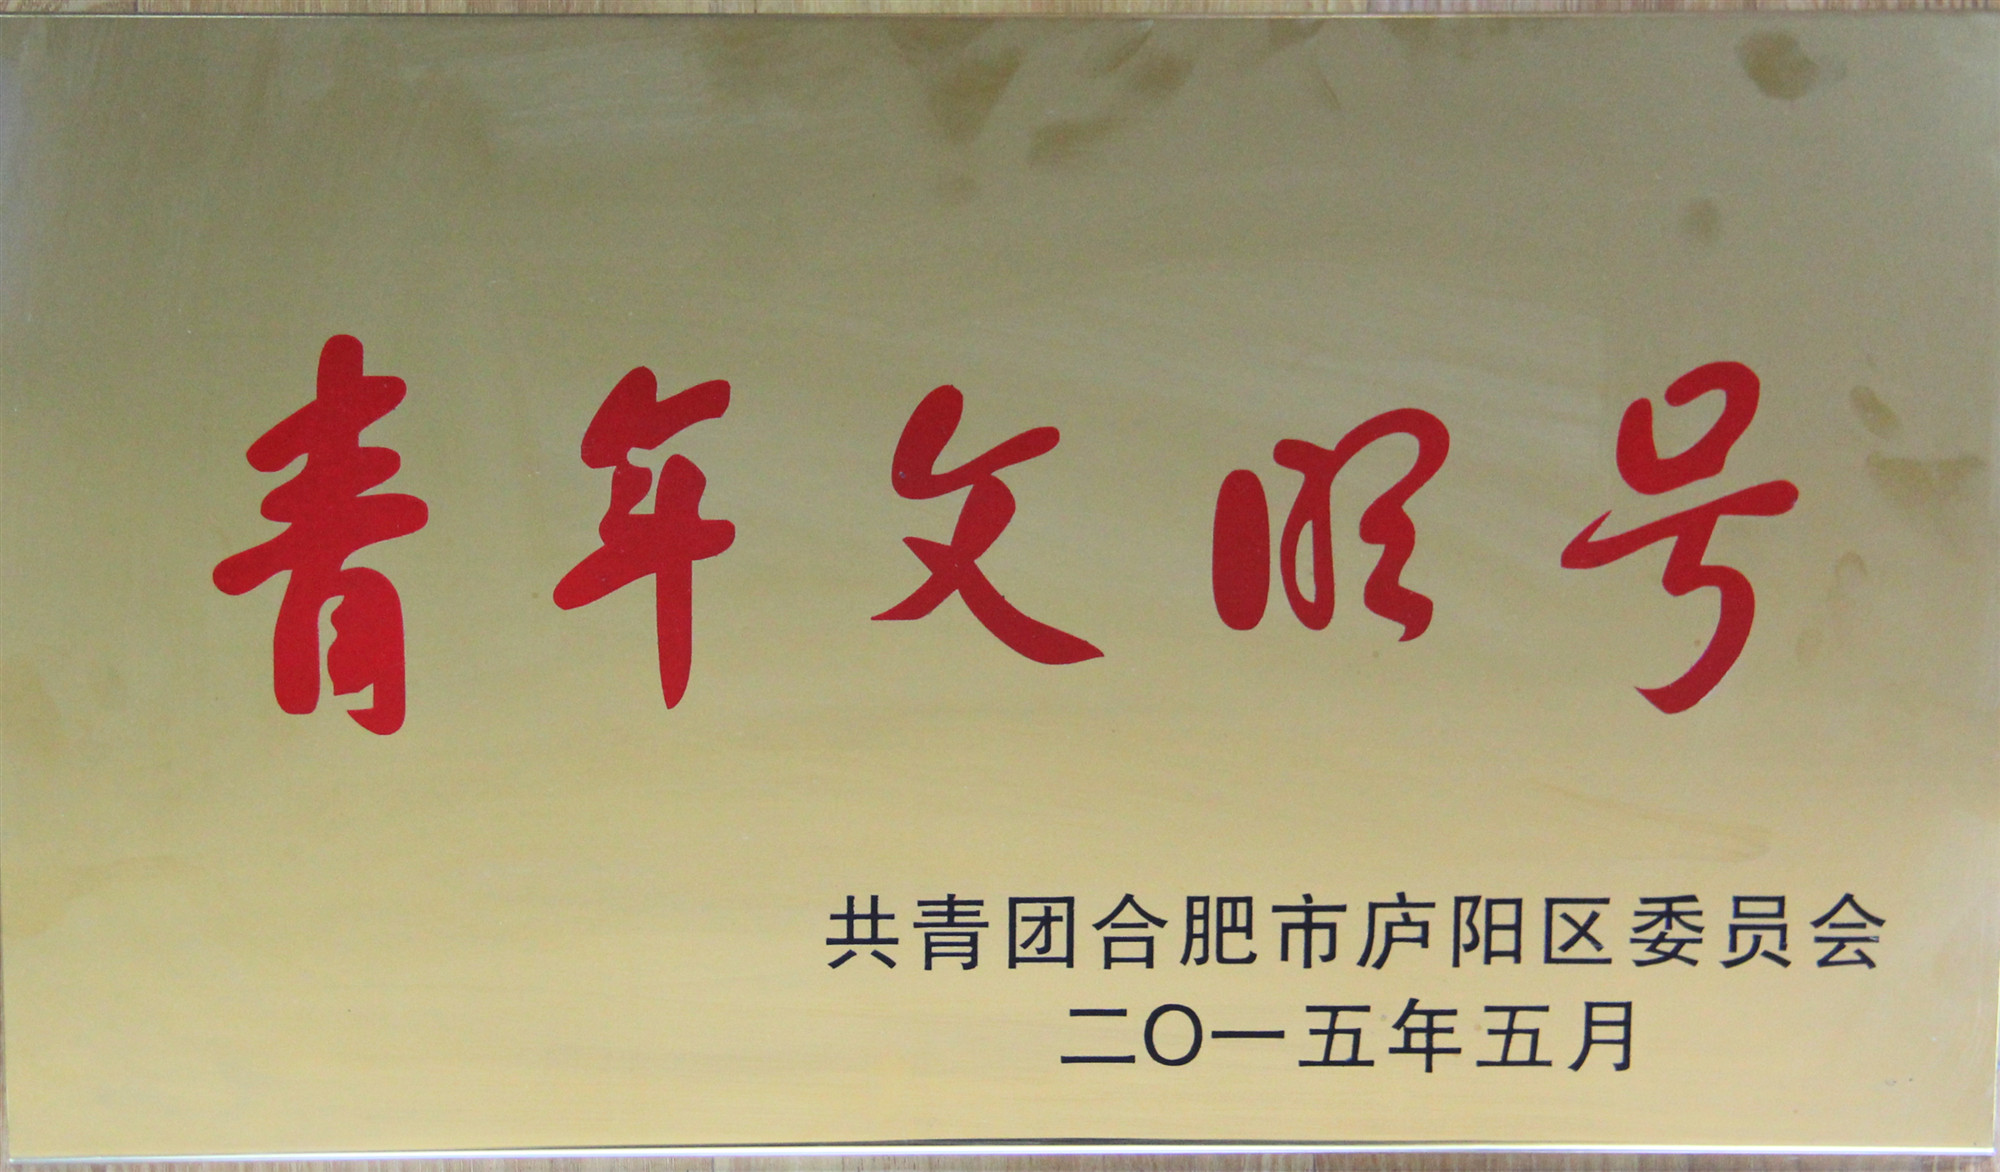 青年文明号
共青团合肥市庐阳区委员会
二〇一五年五月